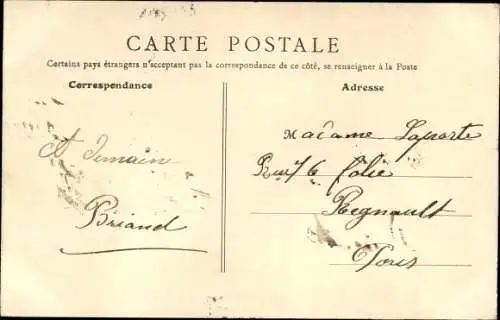 CARTE POSTALE
Certains pays étrangers n'acceptant pas la correspondance de ce côté, se renseigner à la Poste
Correspondance
Adresse
A Demain
Briand
Madame Laporte
Rue 76 folie
Regnault
Paris